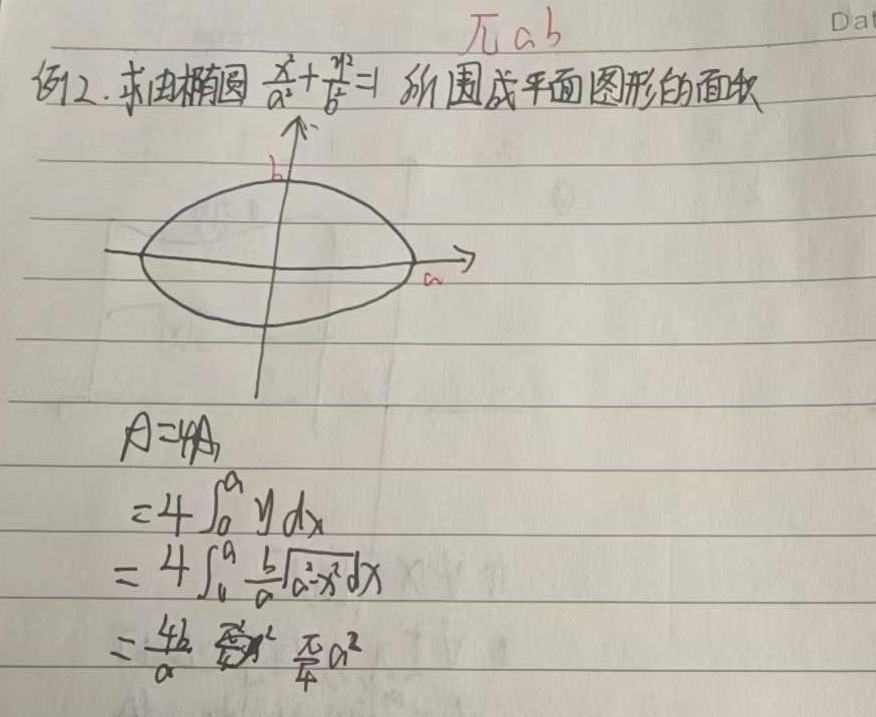 πab
Dat
例2. 求由椭圆 x²/a² + y²/b² = 1 所围成平面图形的面积
b
a
A=4A₁
=4∫₀ᵃ y dx
= 4∫₀ᵃ b/a √(a²-x²) dx
= 4b/a π/4 a²